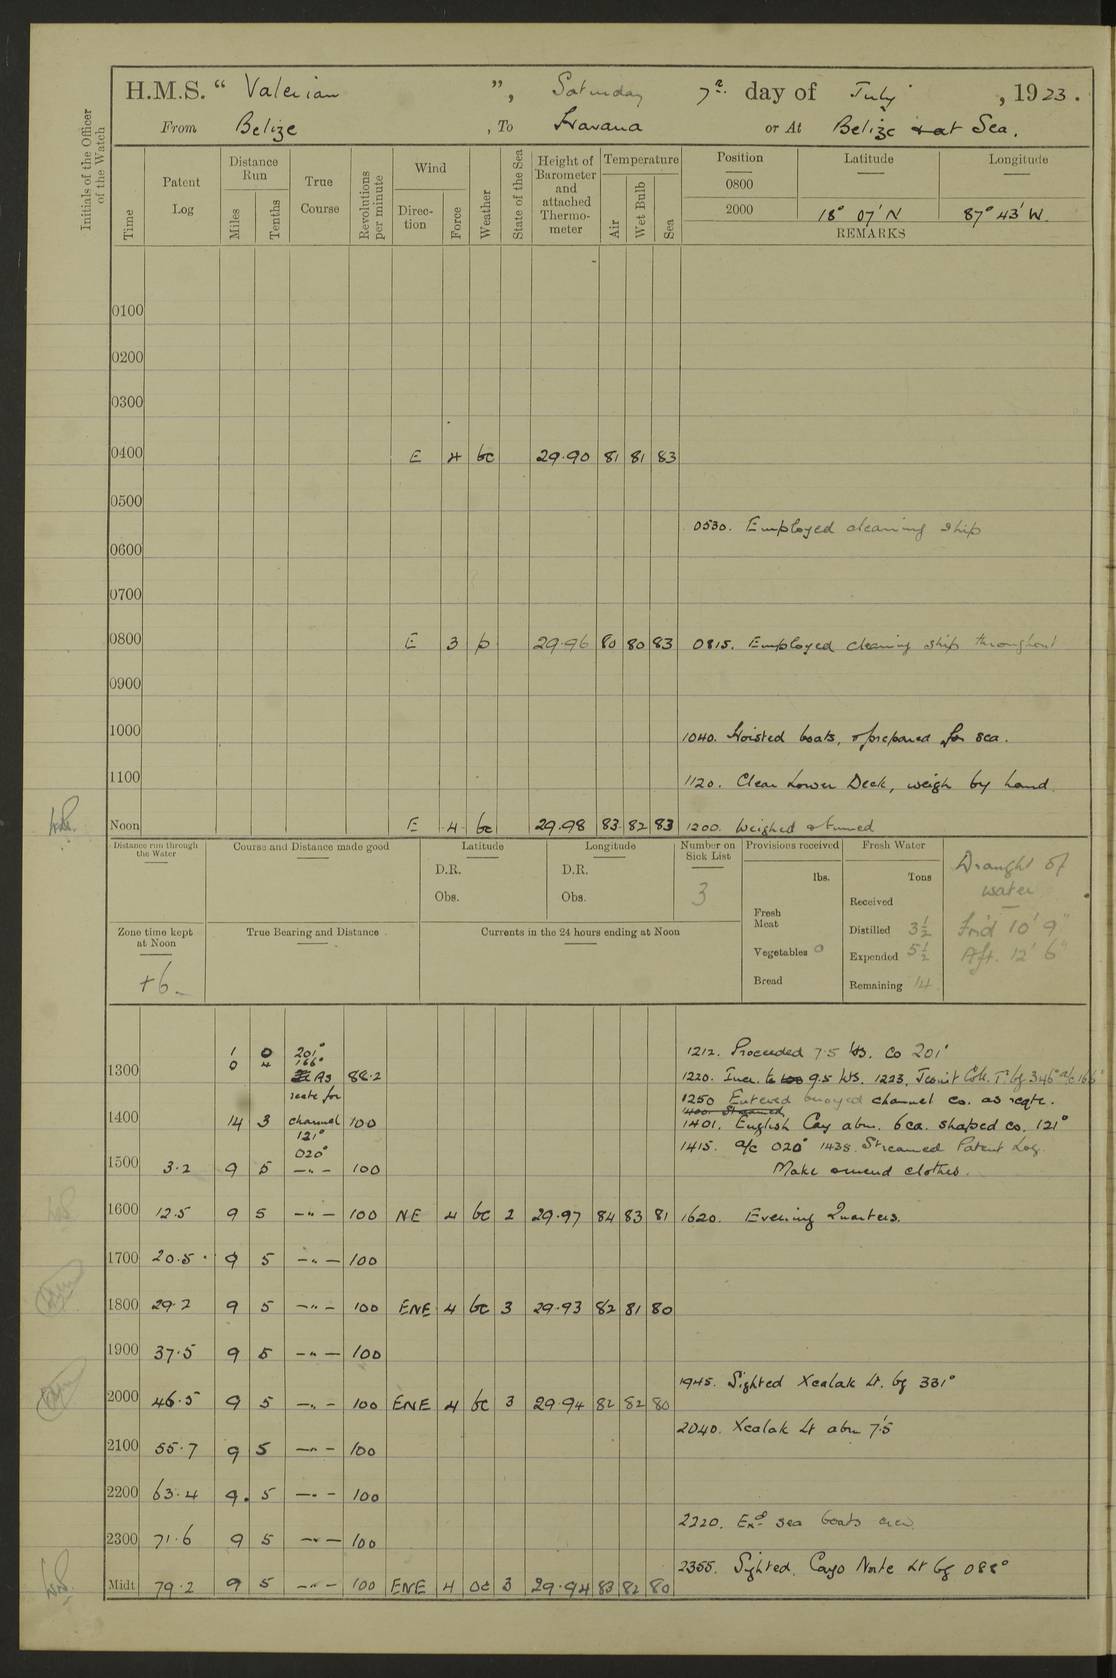 H.M.S. “ Valerian ”, Saturday 7th day of July , 1923 .
From Belize , To Havana or At Belize & at Sea.
Initials of the Officer of the Watch
Time
Patent Log
Distance Run
Miles
Tenths
True Course
Revolutions per minute
Wind
Direc-tion
Force
Weather
State of the Sea
Height of Barometer and attached Thermo-meter
Temperature
Air
Wet Bulb
Sea
Position
Latitude
Longitude
0800
2000 18° 07' N 87° 43' W.
REMARKS
0100
0200
0300
0400 E 4 bc 29.90 81 81 83
0500
0530. Employed cleaning ship
0600
0700
0800 E 3 b 29.96 80 80 83 0815. Employed cleaning ship throughout
0900
1000 1040. Hoisted boats, & prepared for sea.
1100 1120. Clear Lower Deck, weigh by hand.
Noon E 4 bc 29.98 83 82 83 1200. Weighed & turned
Distance run through the Water
Course and Distance made good
Latitude
D.R.
Obs.
Longitude
D.R.
Obs.
Number on Sick List
3
Provisions received
lbs.
Fresh Meat
Vegetables 0
Bread
Fresh Water
Tons
Received
Distilled 3½
Expended 5½
Remaining 14
Draught of water
For'd 10' 9"
Aft. 12' 6"
Zone time kept at Noon
+6
True Bearing and Distance
Currents in the 24 hours ending at Noon
1 0 201° 1212. Proceeded 7.5 kts. Co 201°
0 4 166°
1300 As 88.2 1220. Incr. to 9.5 kts. 1223. Jesuit Coll. Tr bg 346° a/c 166°
reqte for 1250 Entered buoyed channel co. as reqte.
1400. Streamed
1400 14 3 channel 100 1401. English Cay abm. 6 ca. shaped co. 121°
121°
020° 1415. a/c 020° 1438. Streamed Patent Log.
1500 3.2 9 5 —"— 100 Make & mend clothes.
1600 12.5 9 5 —"— 100 NE 4 bc 2 29.97 84 83 81 1620. Evening Quarters.
1700 20.5 9 5 —"— 100
1800 29.2 9 5 —"— 100 ENE 4 bc 3 29.93 82 81 80
1900 37.5 9 5 —"— 100
1945. Sighted Xcalak Lt. bg 331°
2000 46.5 9 5 —"— 100 ENE 4 bc 3 29.94 82 82 80
2040. Xcalak Lt abm 7.5'
2100 55.7 9 5 —"— 100
2200 63.4 9 5 —"— 100
2220. Exd sea boats crew.
2300 71.6 9 5 —"— 100
2355. Sighted. Cayo Norte Lt bg 088°
Midt 79.2 9 5 —"— 100 ENE 4 bc 3 29.94 83 82 80